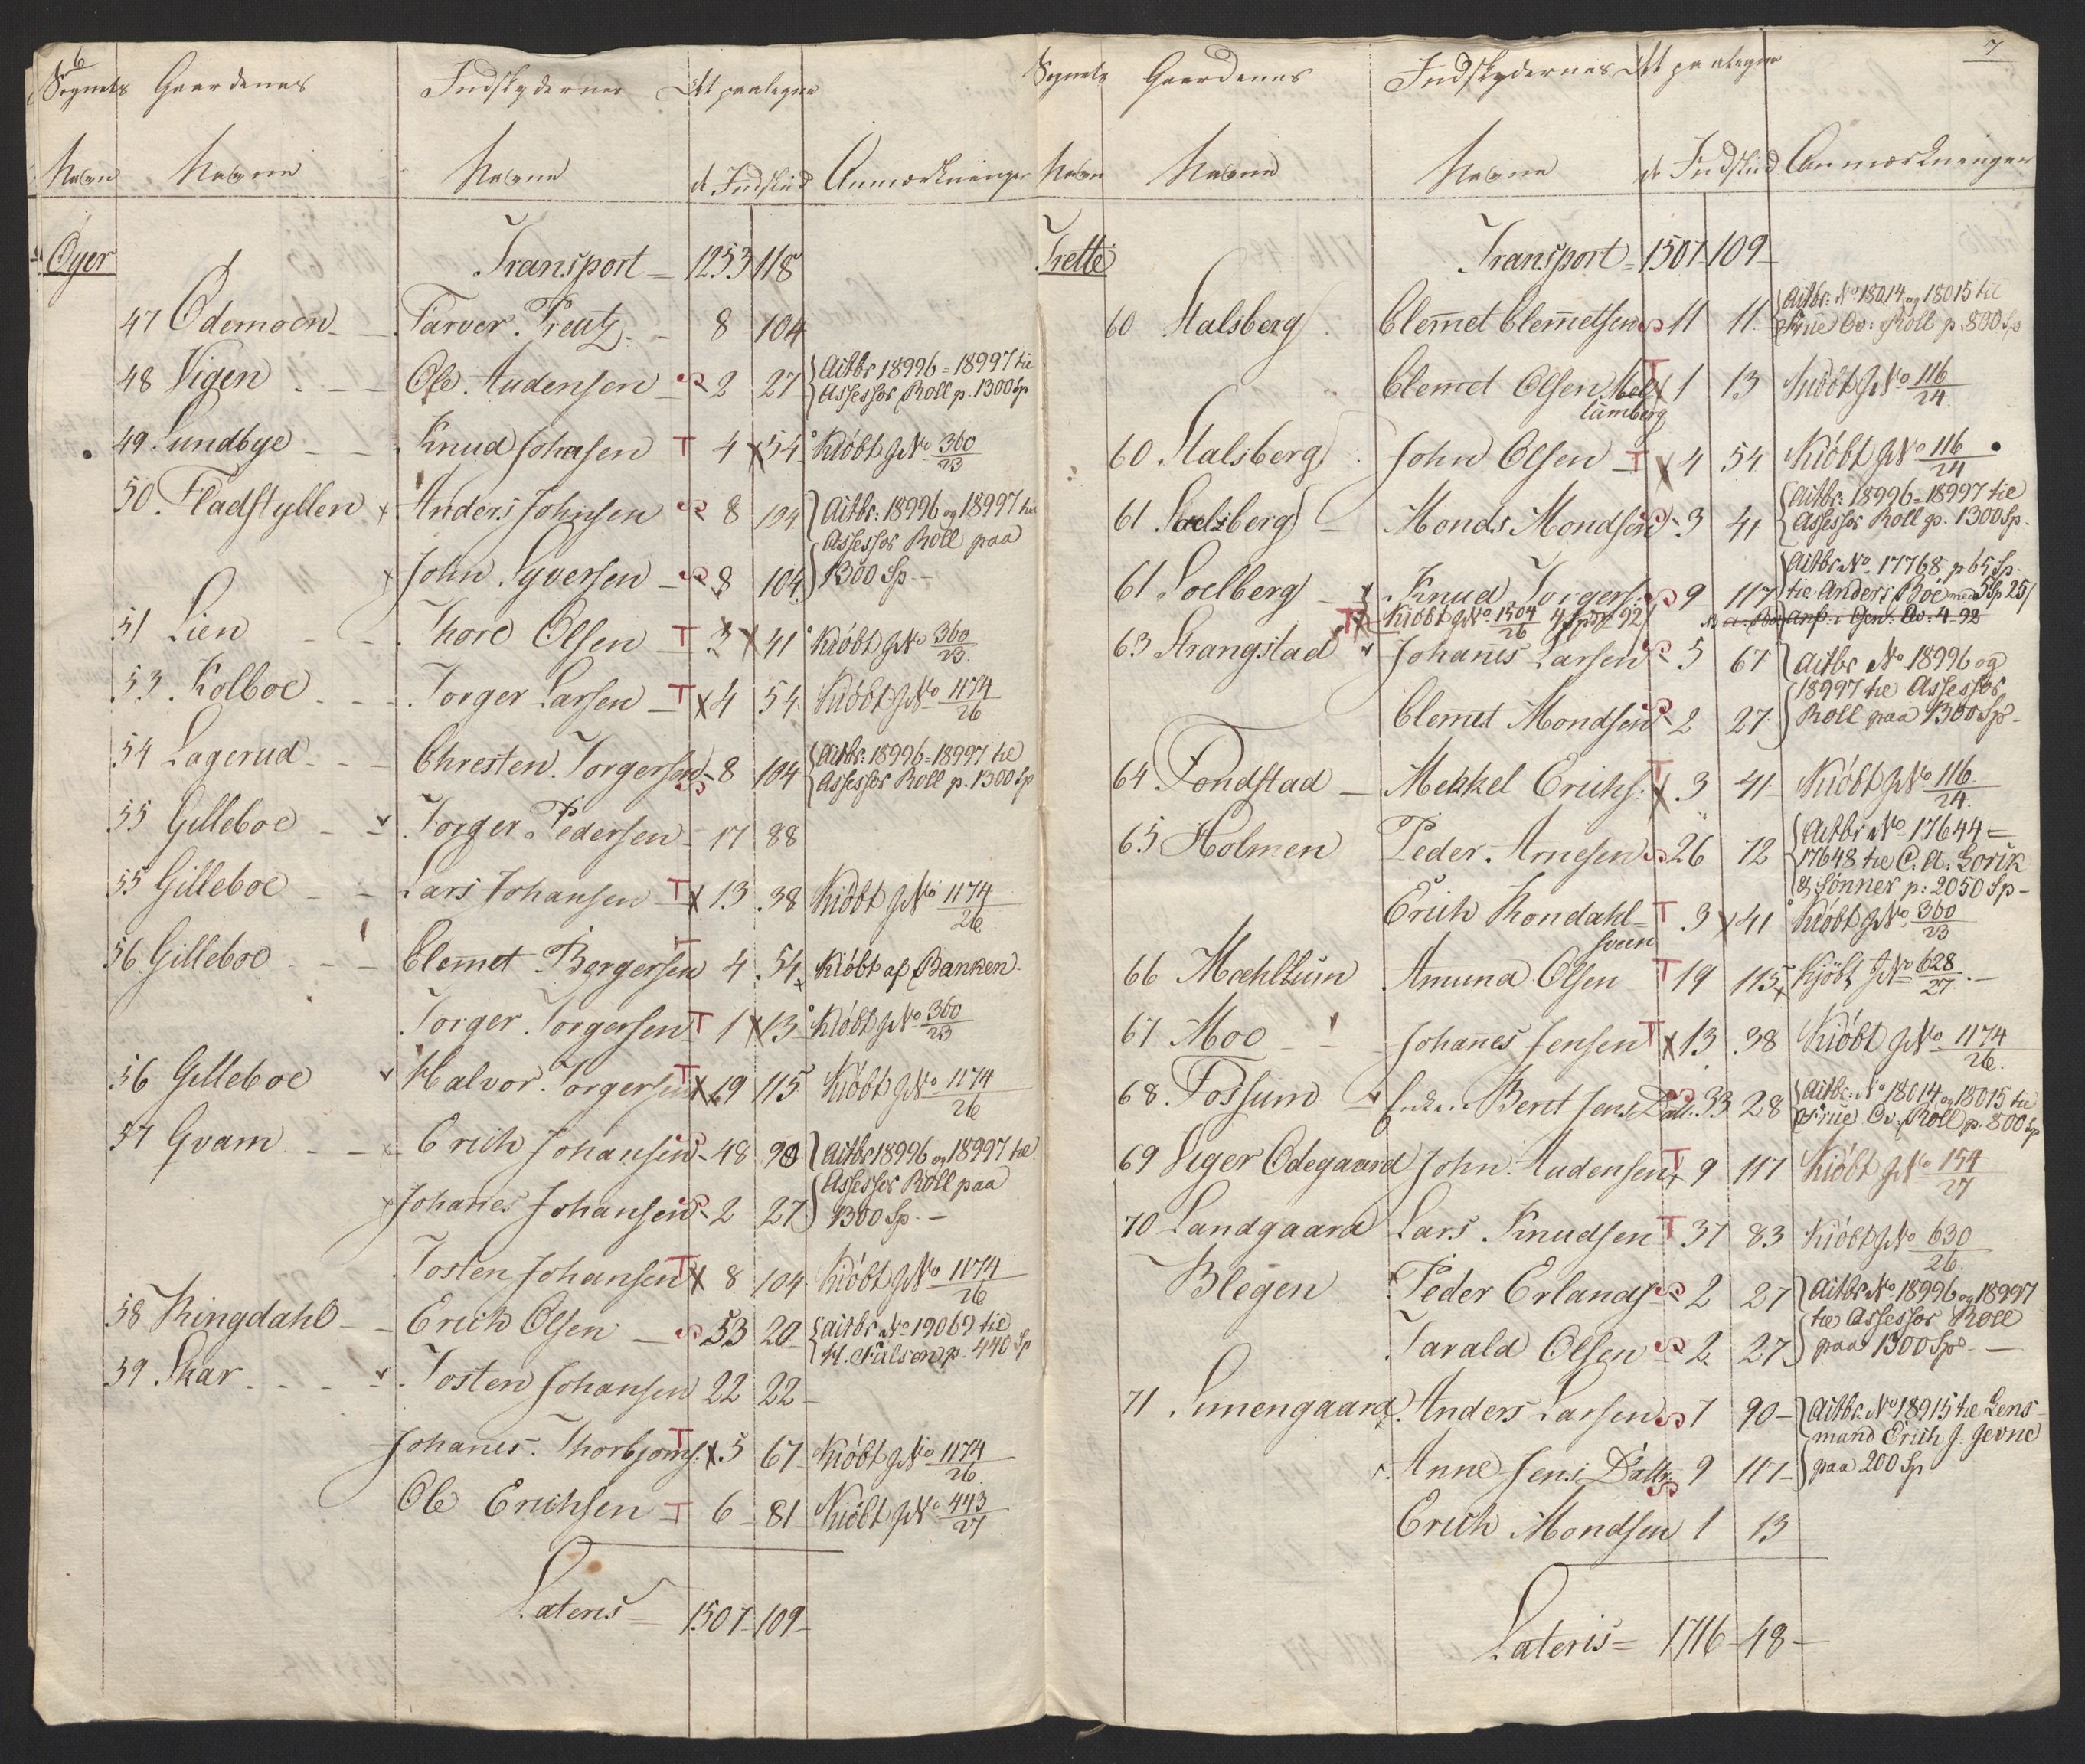 6
Sognets Gaardenes Indskydernes Det paalagte
Navn Navne Navne Indskud Anmærkninger
Øyer Transport 1253 118
47 Odemoen Farver Kreutz 8 104
48 Vigen Ole Audensen 2 27 Aitbr 18996 = 18997 til
Assessor Roll p. 1300 Sp
49 Lundbye Knud Johnsen T 4 54 Kiöbt J No 360/23
50 Fladstyllen Anders Johnsen 8 104 Aitbr: 18996 og 18997 til
Assessor Roll paa
John Syversen 8 104 1300 Sp
51 Lien Thore Olsen T 3 41 Kiöbt J No 360/23
53 Kolboe Torger Larsen T 4 54 Kiöbt J No 1174/26
54 Lagerud Chresten Torgersen 8 104 Aitbr: 18996 = 18997 til
Assessor Roll p. 1300 Sp
55 Gilleboe Torger Pedersen 17 88
55 Gilleboe Lars Johansen T 13 38 Kiöbt J No 1174/26
56 Gilleboe Clemet Bergersen T 4 54 Kiöbt af Banken
Torger Torgersen T 1 13 Kiöbt J No 360/23
56 Gilleboe Halvor Torgersen T 19 115 Kiöbt J No 1174/26
57 Gvam Erich Johansen 48 90 Aitbr 18996 og 18997 til
Assessor Roll paa
Johanes Johansen 2 27 1300 Sp
Tosten Johansen T 8 104 Kiöbt J No 1174/26
58 Ringdahl Erich Olsen 53 20 Aitbr No 19069 til
H. Falsen p. 440 Sp
59 Skar Tosten Johansen 22 22
Johanes Thorbjorns: T 5 67 Kiöbt J No 1174/26
Ole Erichsen T 6 81 Kiöbt J No 443/27
Lateris 1507 109
7
Sognets Gaardenes Indskydernes Det paalagte
Navn Navne Navne Indskud Anmærkninger
Trette Transport 1507 109
60 Stalsberg Clemet Clemetsen 11 11 Aitbr: No 18014 og 18015 til
Frue Ov: Roll p. 800 Sp
Clemet Olsen Mel T 1 13 Kiöbt J No 116/24
lumberg
60 Stalsberg John Olsen T 4 54 Kiöbt J No 116/24
61 Soelsberg Monds Mondsen 3 41 Aitbr: 18996 = 18997 til
Assessor Roll p. 1300 Sp.
Aitbr No 17768 p 65 Sp
61 Soelberg Knud Torgers: 9 117 til Anders Böe med 5 Sp 25
T Kiöbt J No 1504/26 4 Spd 92
63 Strangstad Johanes Larsen 5 67 Aitbr No 18996 og
18997 til Assessor
Clemet Mondsen 2 27 Roll paa 1300 Sp
64 Tondstad Mekkel Erichs: T 3 41 Kiöbt J No 116/24
65 Holmen Peder Arnesen 26 12 Aitbr No 17644 =
17648 til C: A: Lorik
& Sönner p: 2050 Sp
Erich Rondahl T 3 41 Kiöbt J No 360/23
sveen
66 Mæhllum Amund Olsen T 19 115 Kjöbt J No 628/27
67 Moe Johanes Jensen T 13 38 Kiöbt J No 1174/26
68 Fossum Enken Beret Jens Dat: 33 28 Aitbr: No 18014 og 18015 til
Frue Ov. Roll p. 800 Sp
69 Viger Odegaard John Audensen T 9 117 Kiöbt J No 154/27
70 Landgaard Lars Knudsen T 37 83 Kiöbt J No 630/26
Blegen Peder Erlands: 2 27 Aitbr No 18996 og 18997
til Assessor Roll
Tarald Olsen 2 27 paa 1300 Sp
71 Simengaard Anders Larsen 7 90 Aitbr: No 18915 til Lens
mand Erich J. Jevne
Anne Jens Datt: 9 117 paa 200 Sp
Erich Mondsen 1 13
Lateris 1716 48